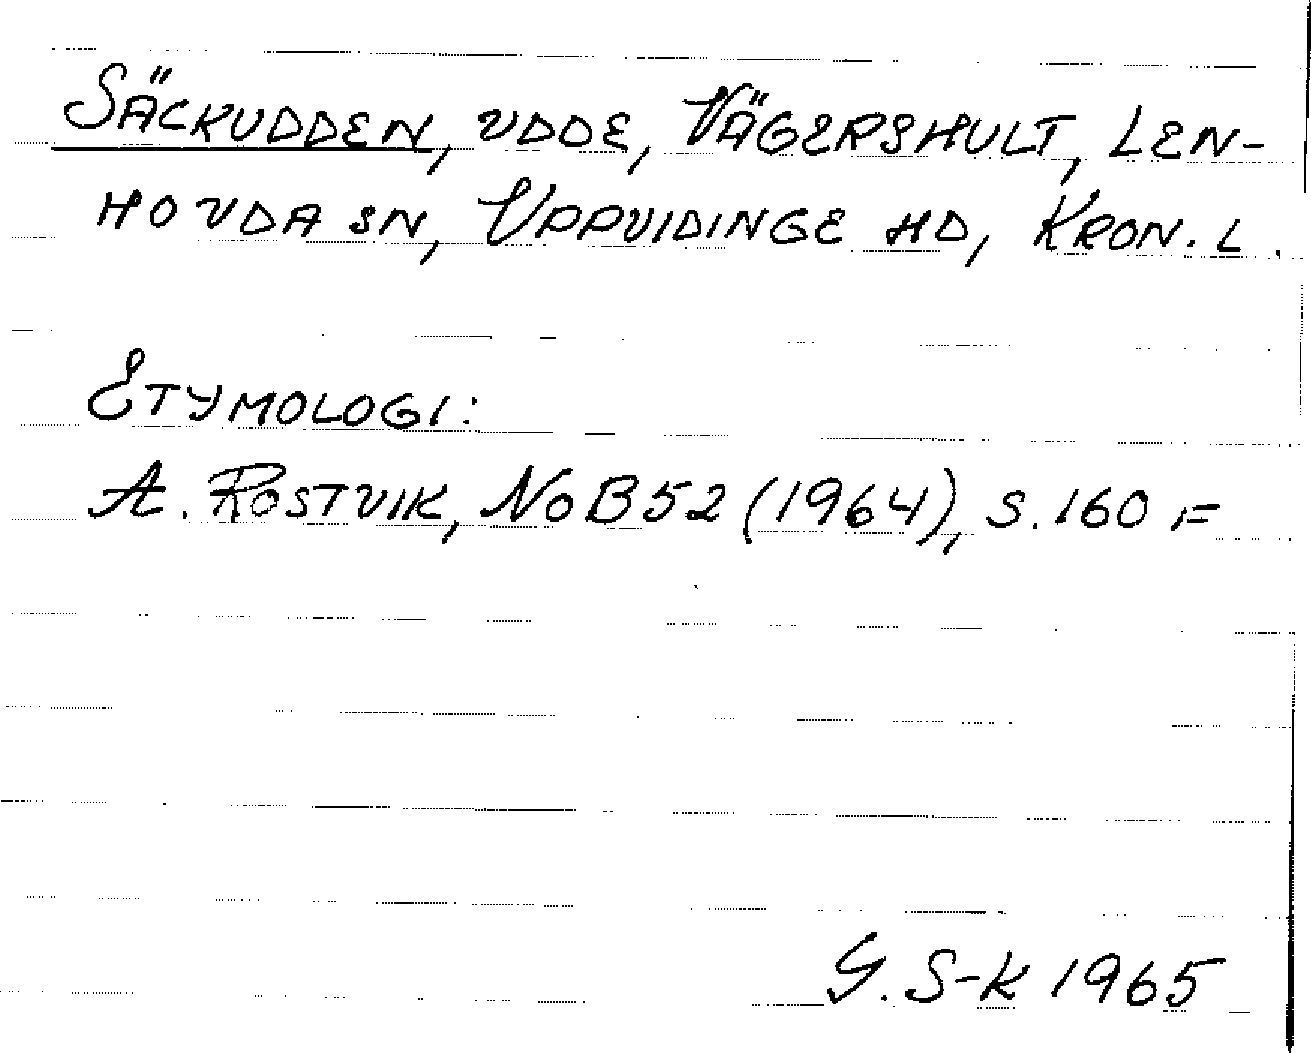 SÄCKUDDEN, UDDE, VÄGERSHULT, LEN-
HOVDA SN, UPPVIDINGE HD, KRON. L.
ETYMOLOGI:
A. ROSTVIK, NoB 52 (1964), S. 160 F
G. S-K 1965